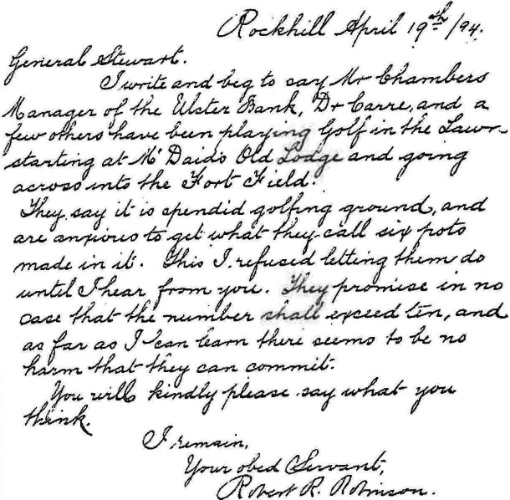 Rockhill April 19th/94.
General Stewart.
I write and beg to say Mr Chambers
Manager of the Ulster Bank, Dr Carre, and a
few others have been playing Golf in the Lawn
starting at McDaid's Old Lodge and going
across into the Fort Field.
They say it is spendid golfing ground, and
are anxious to get what they call six pots
made in it. This I refused letting them do
until I hear from you. They promise in no
case that the number shall exceed ten, and
as far as I can learn there seems to be no
harm that they can commit.
You will kindly please say what you
think.
I remain,
Your obed Servant,
Robert R. Robinson.